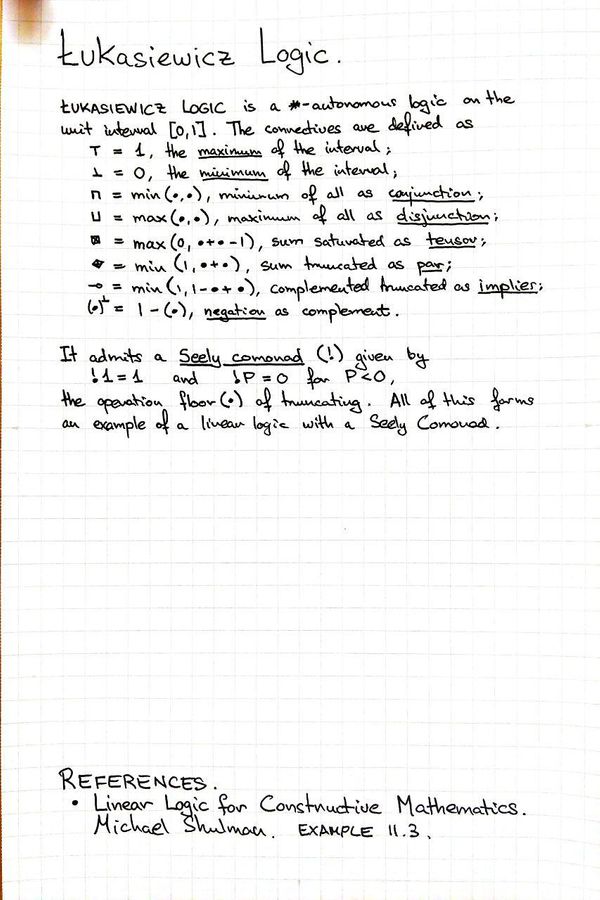 Łukasiewicz Logic.
ŁUKASIEWICZ LOGIC is a *-autonomous logic on the
unit interval [0,1]. The connectives are defined as
⊤ = 1, the maximum of the interval;
⊥ = 0, the minimum of the interval;
⊓ = min(•,•), minimum of all as conjunction;
⊔ = max(•,•), maximum of all as disjunction;
⊠ = max(0, •+•-1), sum saturated as tensor;
= min(1, •+•), sum truncated as par;
⊸ = min(1, 1-•+•), complemented truncated as implier;
(•)^⊥ = 1-(•), negation as complement.
It admits a Seely comonad (!) given by
!1=1 and !P=0 for P<0,
the operation floor(•) of truncating. All of this forms
an example of a linear logic with a Seely Comonad.
REFERENCES.
• Linear Logic for Constructive Mathematics.
Michael Shulman. EXAMPLE 11.3.